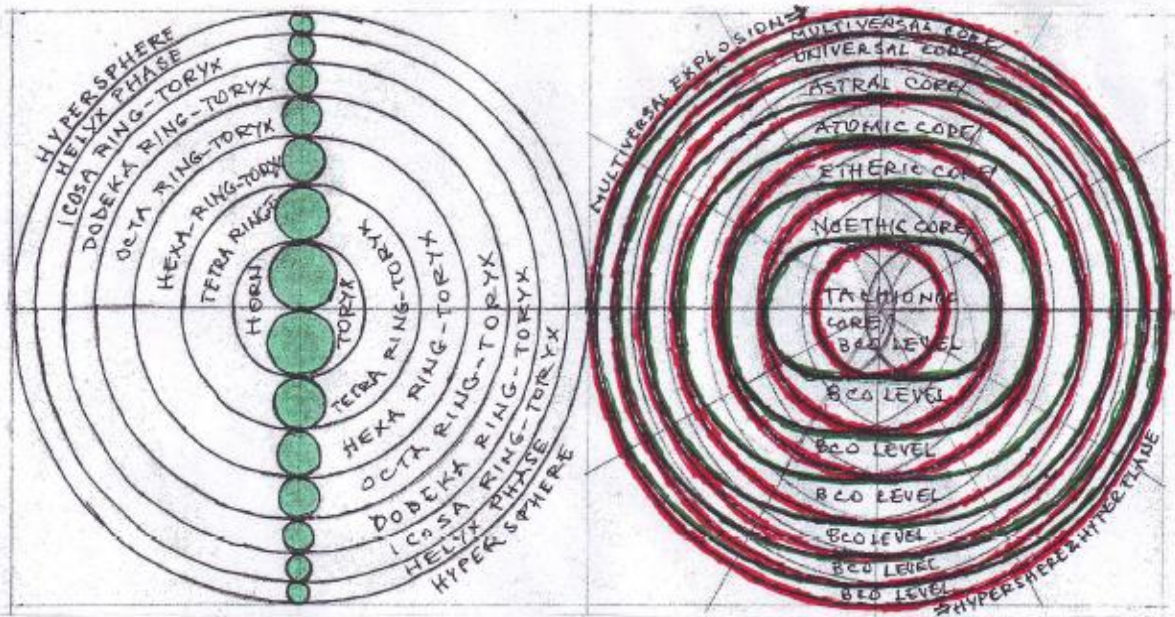 HYPERSPHERE
HELYX PHASE
ICOSA RING-TORYX
DODEKA RING-TORYX
OCTA RING-TORYX
HEXA-RING-TORYX
TETRA RING-T
HORN
TORYX
TETRA RING-TORYX
HEXA RING-TORYX
OCTA RING-TORYX
DODEKA RING-TORYX
ICOSA RING-TORYX
HELYX PHASE
HYPERSPHERE
MULTIVERSAL EXPLOSION→
MULTIVERSAL CORE/
UNIVERSAL CORE/
ASTRAL CORE/
ATOMIC CORE/
ETHERIC CORE/
NOETHIC CORE/
TACHIONIC
CORE/
BCO LEVEL
BCO LEVEL
BCO LEVEL
BCO LEVEL
BCO LEVEL
BCO LEVEL
BCO LEVEL
→HYPERSHERE&HYPERPLANE